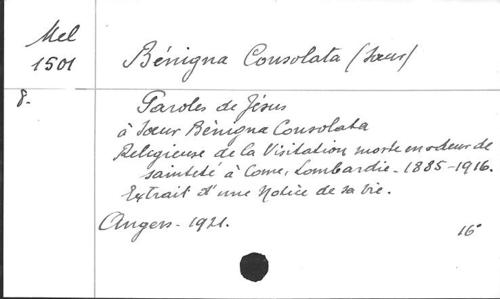 Mel
1501
Bénigna Consolata (Sœur)
8.
Paroles de Jésus
à Sœur Bénigna Consolata
Religieuse de la Visitation morte en odeur de
sainteté à Come, Lombardie - 1885-1916.
Extrait d'une Notice de sa vie.
Angers - 1921.
16°